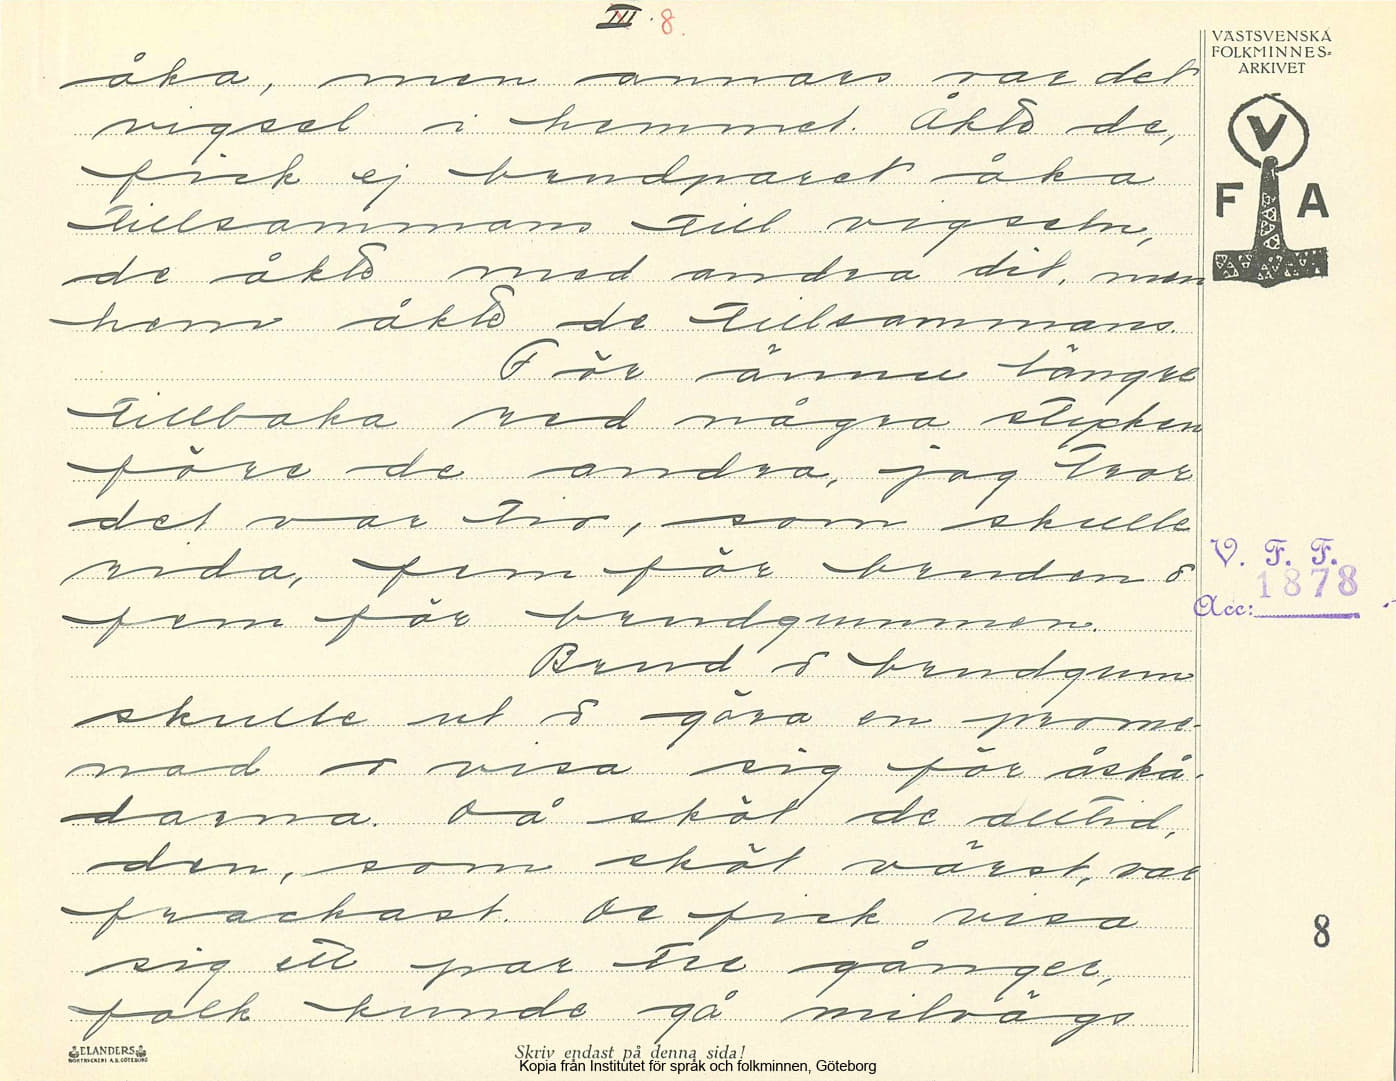 III. 8.
VÄSTSVENSKA
FOLKMINNES-
ARKIVET
V
F A
åka, men annars var det
vigsel i hemmet. Åkte de,
fick ej brudparet åka
tillsammans till vigseln,
de åkte med andra dit, men
hem åkte de tillsammans.
För ännu längre
tillbaka red några stycken
före de andra, jag tror
det var tio, som skulle
rida, fem för bruden o
fem för brudgummen.
Brud o brudgum
skulle ut o göra en prome-
nad o visa sig för åskå-
darna. Då sköt de alltid,
den, som sköt värst, var
frackast. De fick visa
sig ett par tre gånger,
folk kunde gå milvägs
V. F. F.
1878
Acc:
8
ELANDERS
BOKTRYCKERI A.B. GÖTEBORG
Skriv endast på denna sida!
Kopia från Institutet för språk och folkminnen, Göteborg